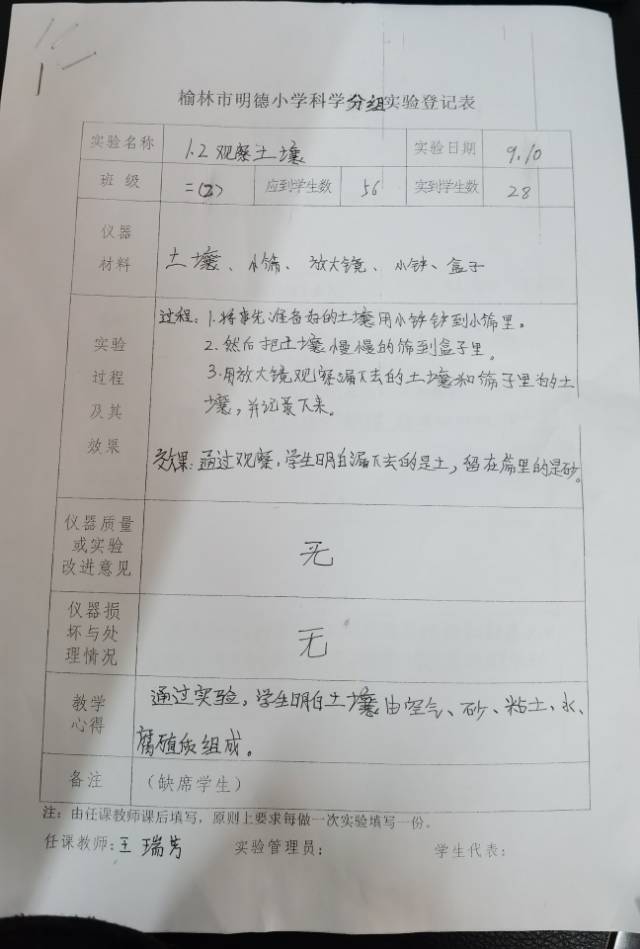 榆林市明德小学科学分组实验登记表
实验名称 1.2 观察土壤 实验日期 9.10
班 级 二(2) 应到学生数 56 实到学生数 28
仪器
材料
土壤、小筛、放大镜、小铲、盒子
实验
过程
及其
效果
过程:1.将事先准备好的土壤用小铲铲到小筛里。
2.然后把土壤慢慢的筛到盒子里。
3.用放大镜观察漏下去的土壤和筛子里的土
壤,并记录下来。
效果:通过观察,学生明白漏下去的是土,留在筛里的是砂。
仪器质量
或实验
改进意见
无
仪器损
坏与处
理情况
无
教学
心得
通过实验,学生明白土壤由空气、砂、粘土、水、
腐植质组成。
备注 (缺席学生)
注:由任课教师课后填写,原则上要求每做一次实验填写一份。
任课教师:王瑞芳 实验管理员: 学生代表: